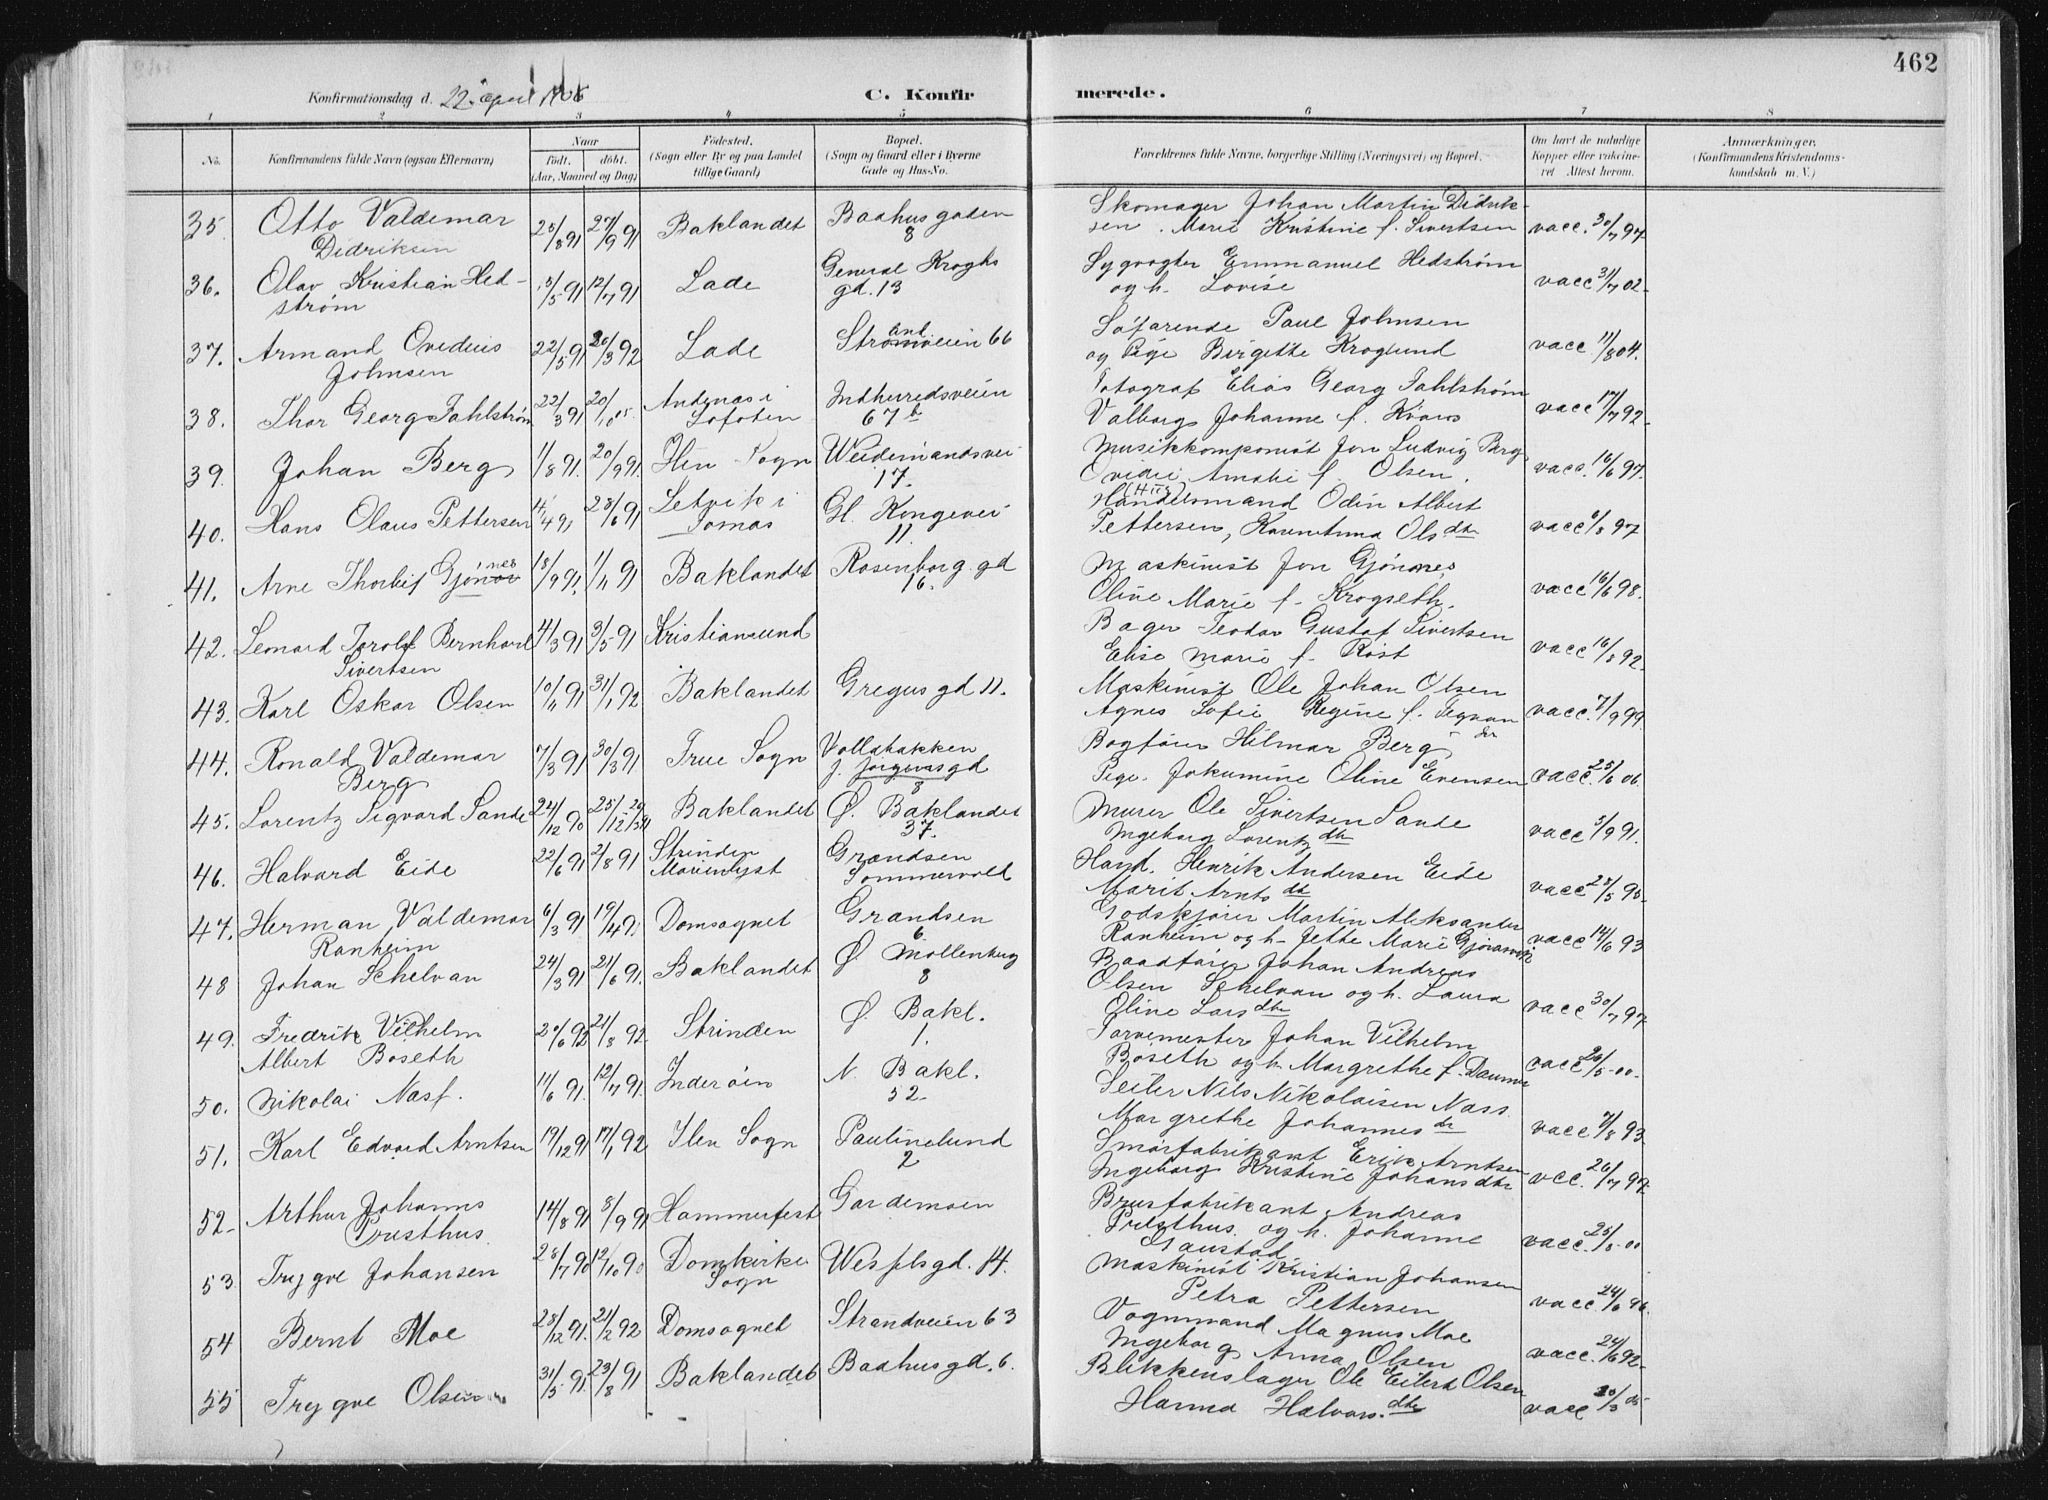 462
Konfirmationsdag d. 22. april 1906
C. Konfir merede.
1 2 3 4 5 6 7 8
No. Konfirmandens fulde Navn (ogsaa Efternavn) Naar födt. döbt. (Aar, Maaned og Dag) Födested. (Sogn eller By og paa Landet tillige Gaard) Bopæl. (Sogn og Gaard eller i Byerne Gade og Hus-No. Forældrenes fulde Navne, borgerlige Stilling (Næringsvei) og Bopæl. Om havt de naturlige Kopper eller vakcineret Attest herom. Anmærkninger. (Konfirmandens Kristendomskundskab m. V.)
35. Otto Valdemar 25/8 91 27/9 91 Baklandet Baahusgaden Skomager Johan Martin Didrik-
Didriksen 8 sen. Marie Kristine f. Sivertsen vacc. 30/7 97
36. Olav Kristian Hed- 3/5 91 12/7 91 Lade General Kroghs Sygvogter Emmanuel Hedstrøm
strøm gd. 13 og h. Lovise vacc 31/7 02
37. Armand Ovedius 22/5 91 20/3 92 Lade Strandveien 66 Søfarende Paul Johnsen
Johnsen og Pige Birgitte Kroglund vacc 11/8 04.
38. Thor Georg Fahlstrøm 22/3 91 20/1 05 Andenæs i Indherredsveien Fotograf Elias Georg Fahlstrøm
Lofoten 67 b Valborg Johanne f. Kvarv vacc 17/7 92
39. Johan Berg 1/8 91. 20/9 91. Ilen Sogn Weidemandsvei Musikkomponist Jon Ludvig Berg
17. Ovedie Amalie f. Olsen. vacc. 16/6 97.
40. Hans Olaus Pettersen 14/4 91 28/6 91 Letvik i Gl. Kongevei Handelsmand Odin Albert
Somas 11. Pettersen, Karen Anna Olsdtr vacc 6/8 97
41. Arne Thorleif Gjönnes 18/9 91. 1/11 91 Baklandet Rosenborg gd Maskinist Jon Gjönnes
16. Oline Marie f. Krogseth. vacc 16/6 98.
42. Leonard Torolf Bernhard 4/3 91 3/5 91 Kristiansund Bager Teodor Gustaf Sivertsen
Sivertsen Elise Marie f. Röst vacc 16/8 92
43. Karl Oskar Olsen 10/11 91 31/1 92 Baklandet Gregus gd 11. Maskinist Ole Johan Olsen
Agnes Sofie Regine f. Tegnan der vacc. 7/9 99
44. Ronald Valdemar 7/3 91 30/3 91 Frue Sogn Vollabakken Bogfører Hilmar Berg
Berg j. Jörgensgd 8 Pige. Jokumine Oline Evensen vacc. 25/1 06.
45. Lorentz Sigvard Sande 24/12 90 25/12 Baklandet Ø. Baklandet Murer Ole Sivertsen Sande
37. Ingeborg Lorentzdtr vacc 5/9 91.
46. Halvard Eide 22/6 91 2/8 91 Strinden Grændsen Hand. Henrik Andersen Eide
Marienlyst Sommervold Marit Arntsdt vacc 25/5 93
47. Herman Valdemar 6/3 91 19/4 91 Domsognet Grændsen Godskjører Martin Aleksander
Ranheim 6 Ranheim og h. Jette Marie Gjörasvik vacc 14/6 93
48 Johan Schelvan 24/3 91 21/6 91. Baklandet Ø Mollenberg Baadfører Johan Andreas
8 Olsen Schelvan og h. Laura
Oline Larsdtr vacc 30/7 97
49. Fredrik Vilhelm 20/6 92 21/8 92. Strinden Ø Bakl. Farvemester Johan Vilhelm
Albert Boseth 1. Boseth og h. Margrethe f. Daumer vacc 26/5-00.
50. Nikolai Nass. 11/6 91. 12/7 91. Inderøen N. Bakl. Seiler Nils Nikolaisen Nass
52 Margrethe Johannesdt vacc 7/8 93
51. Karl Edvard Arntsen 19/12 91 17/1 92 Ilen Sogn Paulinelund Smørfabrikant Erik Arntsen
2 Ingeborg Kristine Johansdtr vcc. 26/7 97
52. Arthur Johannes 14/8 91 8/9 91 Hammerfest Gardemoen Brusfabrikant Andreas
Presthus. Presthus. og h. Johanne
Gaustad vacc. 25/8-00
53 Trygve Johansen 28/7 90 12/10 90 Domkirke Wesselsgd. 14. Maskinist Kristian Johansen
Sogn Petra Pettersen vacc 24/6 96.
54 Bernt Moe 28/12 91. 21/2 92 Domsognet Strandveien 63 Vognmand Magnus Moe
Ingeborg Anna Olsen vacc. 24/6 92
55 Trygve Olsen 31/5 91. 23/8 91 Baklandet Baahusgd. 6. Blikkenslager Ole Eilert Olsen
Hanna Halvorsdtr vacc 20/3 05